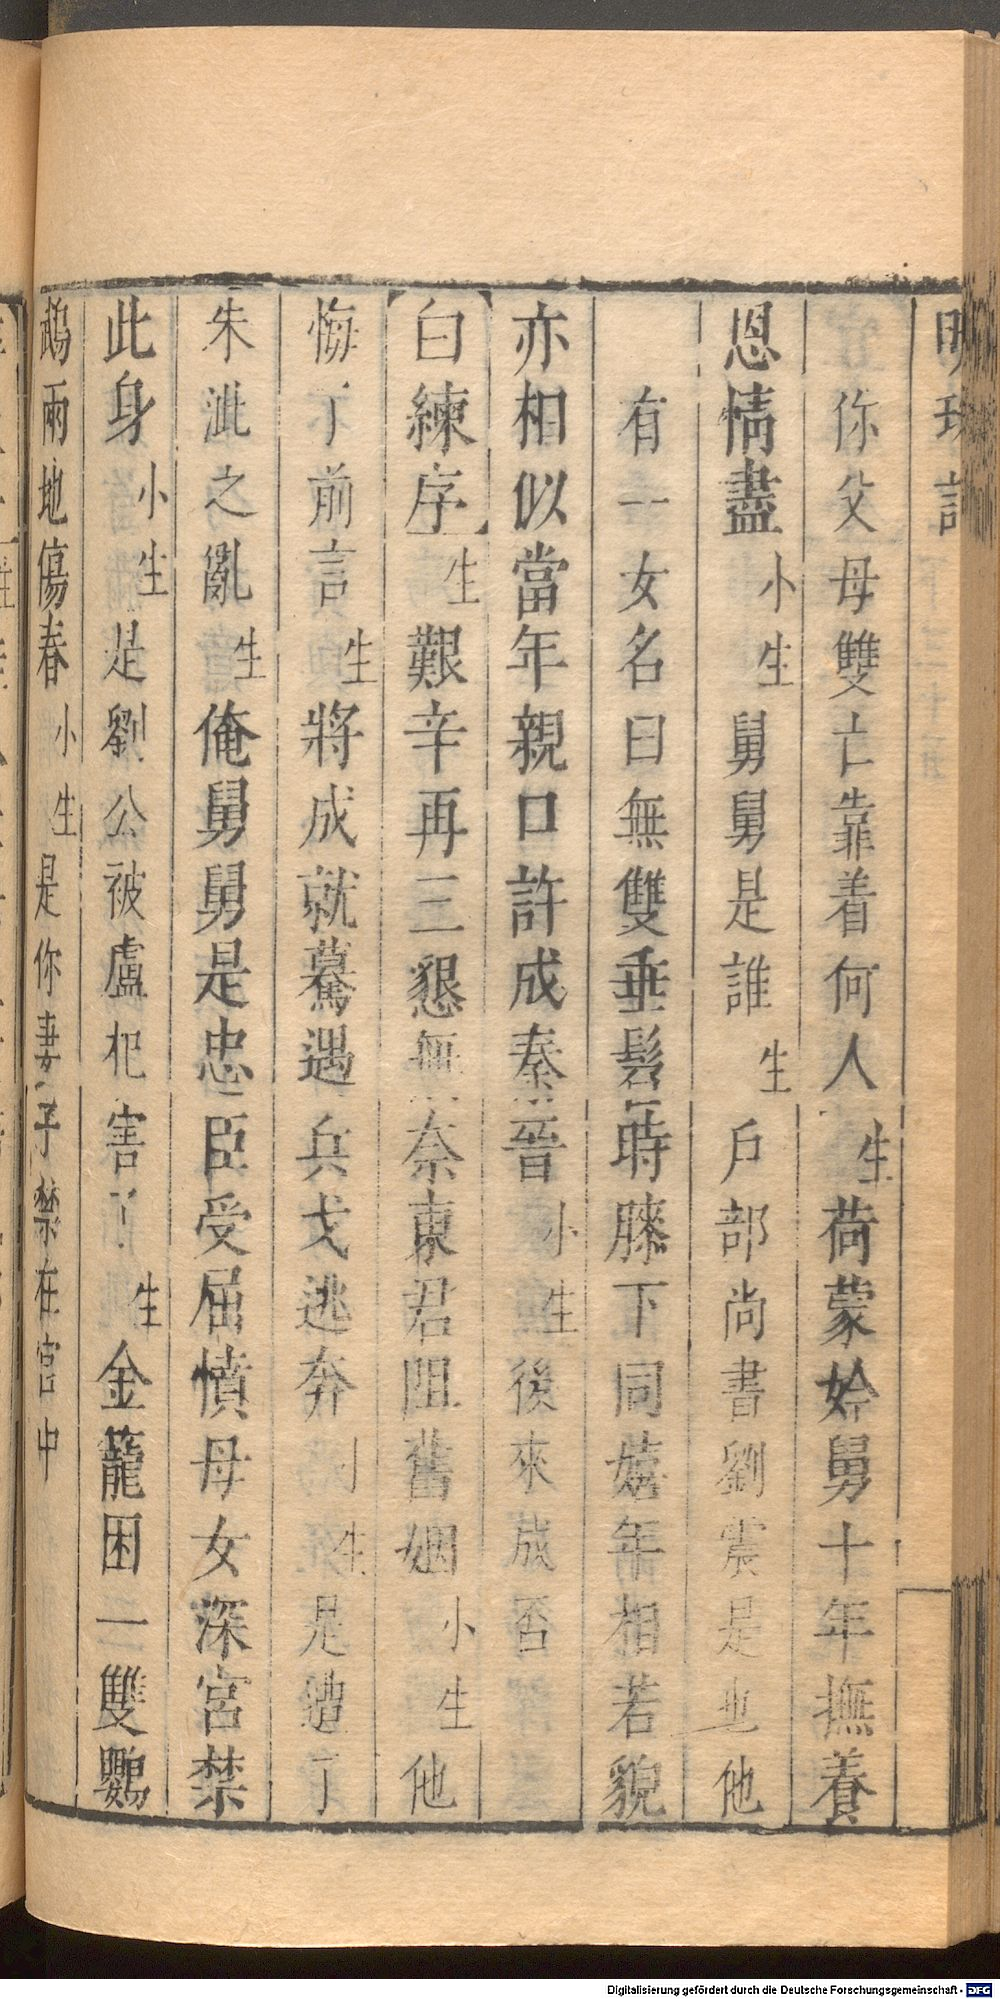 明珠記
你父母雙亡靠着何人生荷蒙妗舅十年撫養
恩情盡小生舅舅是誰生戶部尚書劉震是也他
有一女名曰無雙垂髫時膝下同嬉年相若貌
亦相似當年親口許成秦晉小生後來成否
白練序生艱辛再三懇無奈東君阻舊姻小生他
悔了前言生將成就驀遇兵戈逃奔小生是遭了
朱泚之亂生俺舅舅是忠臣受屈憤母女深宮禁
此身小生是劉公被盧杞害了生金籠困一雙鸚
鵡兩地傷春小生是你妻子禁在宮中
Digitalisierung gefördert durch die Deutsche Forschungsgemeinschaft - DFG